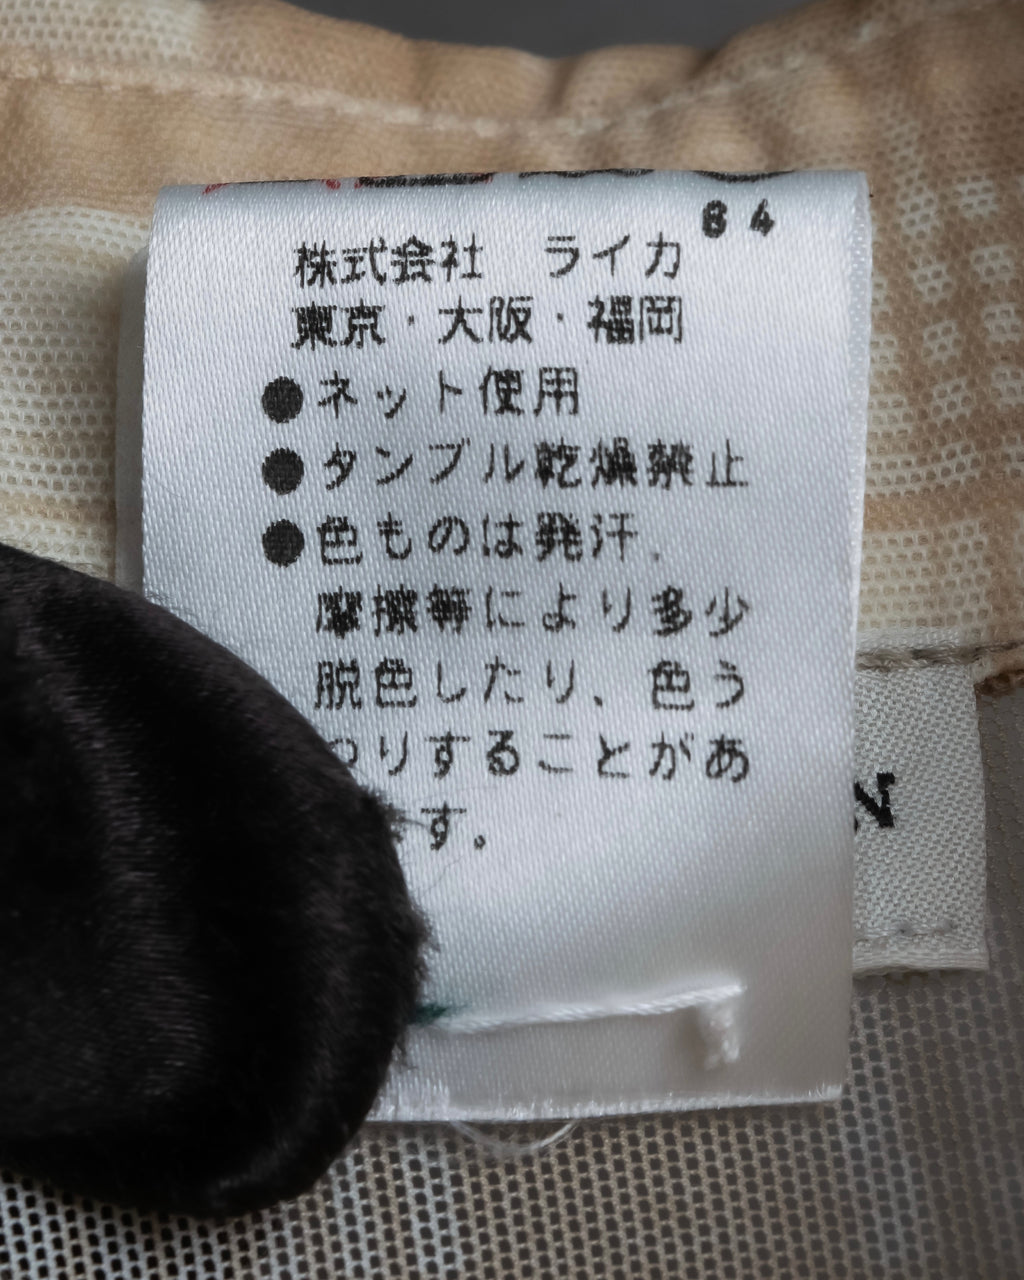 84
株式会社 ライカ
東京・大阪・福岡
●ネット使用
●タンブル乾燥禁止
●色ものは発汗、
摩擦等により多少
脱色したり、色う
つりすることがあ
す。
N